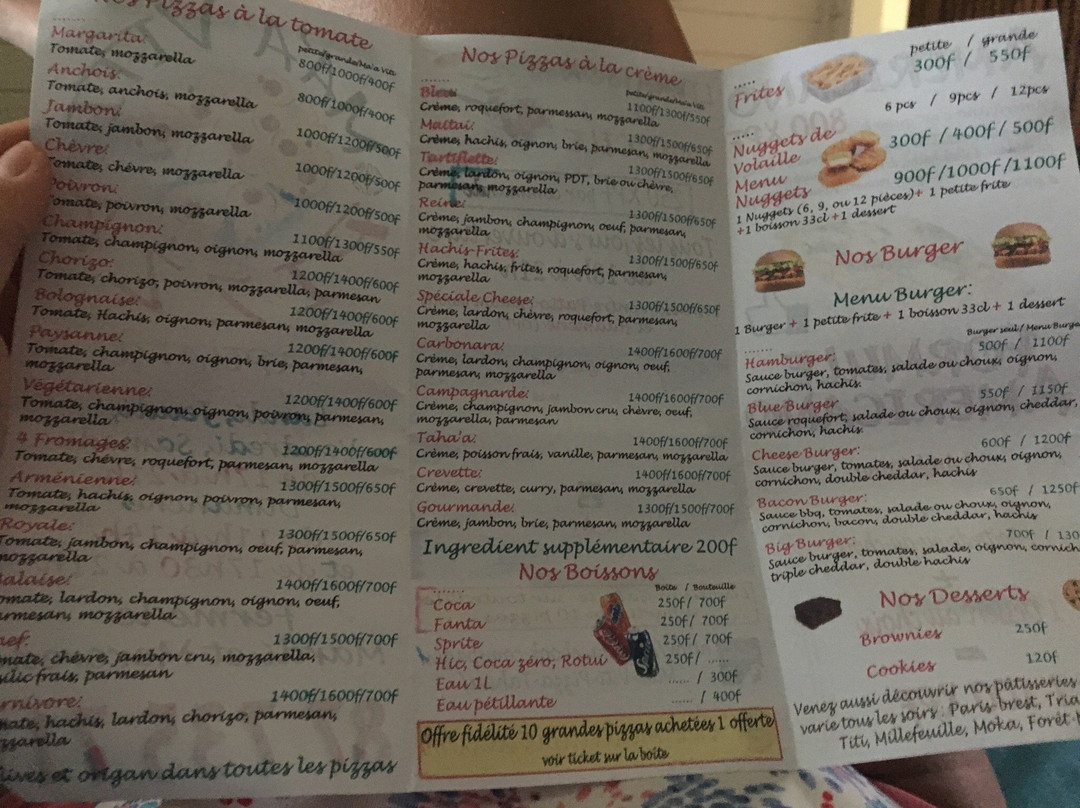 Nos Pizzas à la tomate
petite/grande/Ma'a Viti
Margarita:
Tomate, mozzarella
800f/1000f/400f
Anchois:
Tomate, anchois, mozzarella
800f/1000f/400f
Jambon:
Tomate, jambon, mozzarella
1000f/1200f/500f
Chèvre:
Tomate, chèvre, mozzarella
1000f/1200f/500f
Poivron:
Tomate, poivron, mozzarella
1000f/1200f/500f
Champignon:
Tomate, champignon, oignon, mozzarella
1100f/1300f/550f
Chorizo:
Tomate, chorizo, poivron, mozzarella, parmesan
1200f/1400f/600f
Bolognaise:
Tomate, Hachis, oignon, parmesan, mozzarella
1200f/1400f/600f
Paysanne:
Tomate, champignon, oignon, brie, parmesan,
mozzarella
1200f/1400f/600f
Végétarienne:
Tomate, champignon, oignon, poivron, parmesan,
mozzarella
1200f/1400f/600f
4 Fromages:
Tomate, chèvre, roquefort, parmesan, mozzarella
1200f/1400f/600f
Arménienne:
Tomate, hachis, oignon, poivron, parmesan,
mozzarella
1300f/1500f/650f
Royale:
Tomate, jambon, champignon, oeuf, parmesan,
mozzarella
1300f/1500f/650f
alaise:
omate, lardon, champignon, oignon, oeuf,
armesan, mozzarella
1400f/1600f/700f
ef:
mate, chèvre, jambon cru, mozzarella,
silic frais, parmesan
1300f/1500f/700f
rnivore:
mate, hachis, lardon, chorizo, parmesan,
zzarella
1400f/1600f/700f
lives et origan dans toutes les pizzas
Nos Pizzas à la crème
petite/grande/Ma'a Viti
Bleu:
Crème, roquefort, parmesan, mozzarella
1100f/1300f/550f
Maitai:
Crème, hachis, oignon, brie, parmesan, mozzarella
1300f/1500f/650f
Tartiflette:
Crème, lardon, oignon, PDT, brie ou chèvre,
parmesan, mozzarella
1300f/1500f/650f
Reine:
Crème, jambon, champignon, oeuf, parmesan,
mozzarella
1300f/1500f/650f
Hachis-Frites:
Crème, hachis, frites, roquefort, parmesan,
mozzarella
1300f/1500f/650f
Spéciale Cheese:
Crème, lardon, chèvre, roquefort, parmesan,
mozzarella
1300f/1500f/650f
Carbonara:
Crème, lardon, champignon, oignon, oeuf,
parmesan, mozzarella
1400f/1600f/700f
Campagnarde:
Crème, champignon, jambon cru, chèvre, oeuf,
mozzarella, parmesan
1400f/1600f/700f
Taha'a:
Crème, poisson frais, vanille, parmesan, mozzarella
1400f/1600f/700f
Crevette:
Crème, crevette, curry, parmesan, mozzarella
1400f/1600f/700f
Gourmande:
Crème, jambon, brie, parmesan, mozzarella
1300f/1500f/700f
Ingredient supplémentaire 200f
Nos Boissons
Boite / Bouteuille
Coca 250f/ 700f
Fanta 250f/ 700f
Sprite 250f/ 700f
Hic, Coca zéro, Rotui 250f/ ......
Eau 1L ...... / 300f
Eau pétillante ...... / 400f
Offre fidélité 10 grandes pizzas achetées 1 offerte
voir ticket sur la boite
petite / grande
Frites 300f / 550f
6 pcs / 9pcs / 12pcs
Nuggets de
Volaille 300f / 400f / 500f
Menu
Nuggets 900f/1000f/1100f
1 Nuggets (6, 9, ou 12 pièces)+ 1 petite frite
+1 boisson 33cl +1 dessert
Nos Burger
Menu Burger:
1 Burger + 1 petite frite + 1 boisson 33cl + 1 dessert
Burger seul / Menu Burge
Hamburger: 500f / 1100f
Sauce burger, tomates, salade ou choux, oignon,
cornichon, hachis.
Blue Burger 550f / 1150f
Sauce roquefort, salade ou choux, oignon, cheddar,
cornichon, hachis.
Cheese Burger: 600f / 1200f
Sauce burger, tomates, salade ou choux, oignon,
cornichon, double cheddar, hachis
Bacon Burger: 650f / 1250f
Sauce bbq, tomates, salade ou choux, oignon,
cornichon, bacon, double cheddar, hachis
Big Burger: 700f / 130
Sauce burger, tomates, salade, oignon, cornich
triple cheddar, double hachis
Nos Desserts
Brownies 250f
Cookies 120f
Venez aussi découvrir nos pâtisseries
varie tous les soirs : Paris-brest, Tria
Titi, Millefeuille, Moka, Forêt-